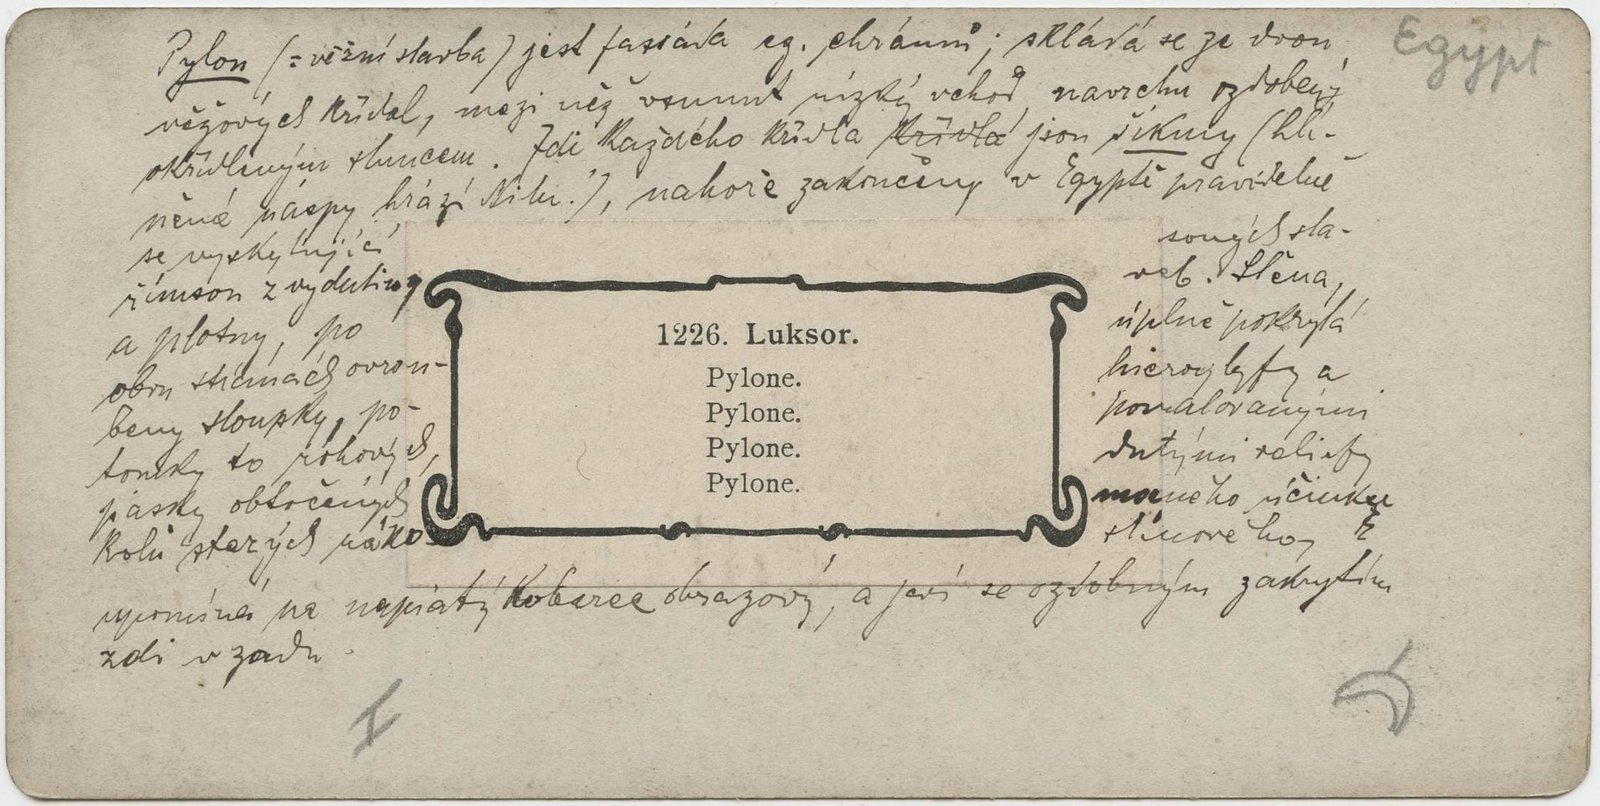 Egypt
Pylon (= věžní stavba) jest fasáda eg. chrámů; skládá se ze dvou
věžových křídel, mezi něž vsunut nízký vchod, navrchu ozdobený
okřídleným sluncem. Zdi každého křídla křídla jsou šikmy (hli-
něné náspy hrází Nilu!), nahoře zakončeny v Egyptě pravidelně
se vyskytující
římson z vydutiny
a plotny, po
obou stranách ovrou-
beny sloupky, po-
tomky to rohových,
pásky obtočených
kolů starých ráko-
sových sta-
veb. Stěna,
úplně pokrytá
hieroglyfy a
pomalovanými
dutými reliefy
mocného účinku
stínového,
upomíná na napiatý koberec obrazový, a jeví se ozdobným zakrytím
zdi v zadu.
1226. Luksor.
Pylone.
Pylone.
Pylone.
Pylone.
I